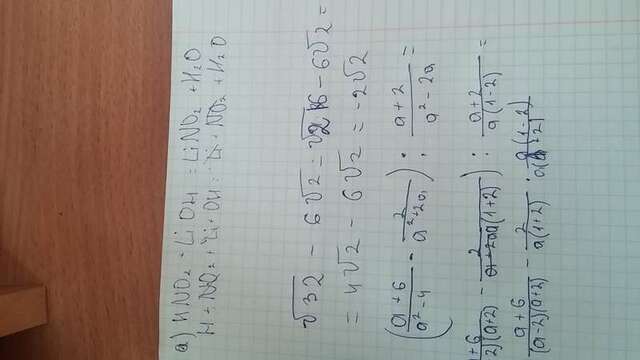 a) HNO₂ + LiOH = LiNO₂ + H₂O
H + NO₂ + Li + OH = Li + NO₂ + H₂O
√32 - 6√2 = √2·16 - 6√2 =
= 4√2 - 6√2 = -2√2
((a+6)/(a²-4) - 2/(a²+2a)) : (a+2)/(a²-2a) =
+6/2)(a+2) - 2/a(1+2)) : (a+2)/(a(1-2)) =
(a+6)/((a-2)(a+2)) - 2/(a(1+2)) · a(1-2)